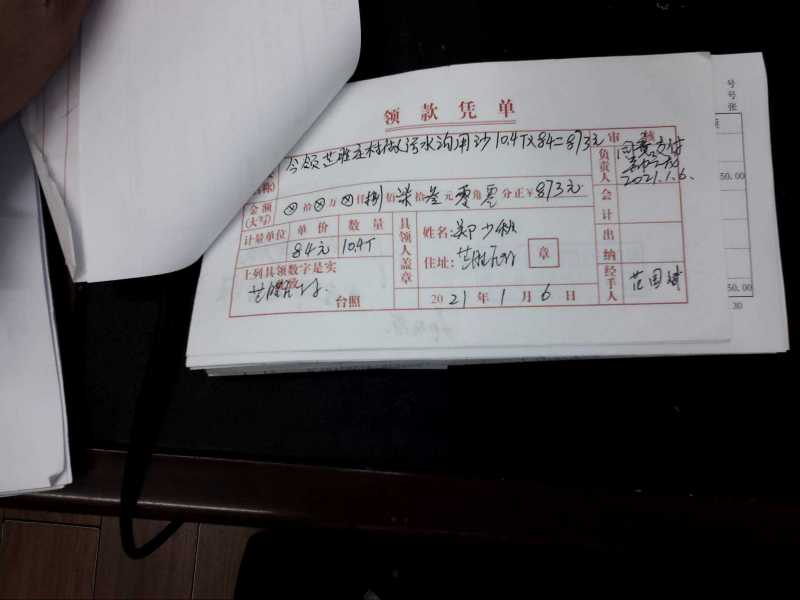 领款凭单
今领芝胜庄村做污水沟用沙10.4T×84=873元
审
称)
金额
(大写)
⊗拾⊗万⊗仟捌佰柒拾叁元零角零分正¥873元
计量单位 单价 数量
84元 10.4T
上列具领数字是实
台照
具领人盖章
姓名:郑少
住址:
章
2021年1月6日
负责人
同意支付
2021.1.6.
会计
出纳
经手人
范国斌
号
号
张
50.00
50.00
30